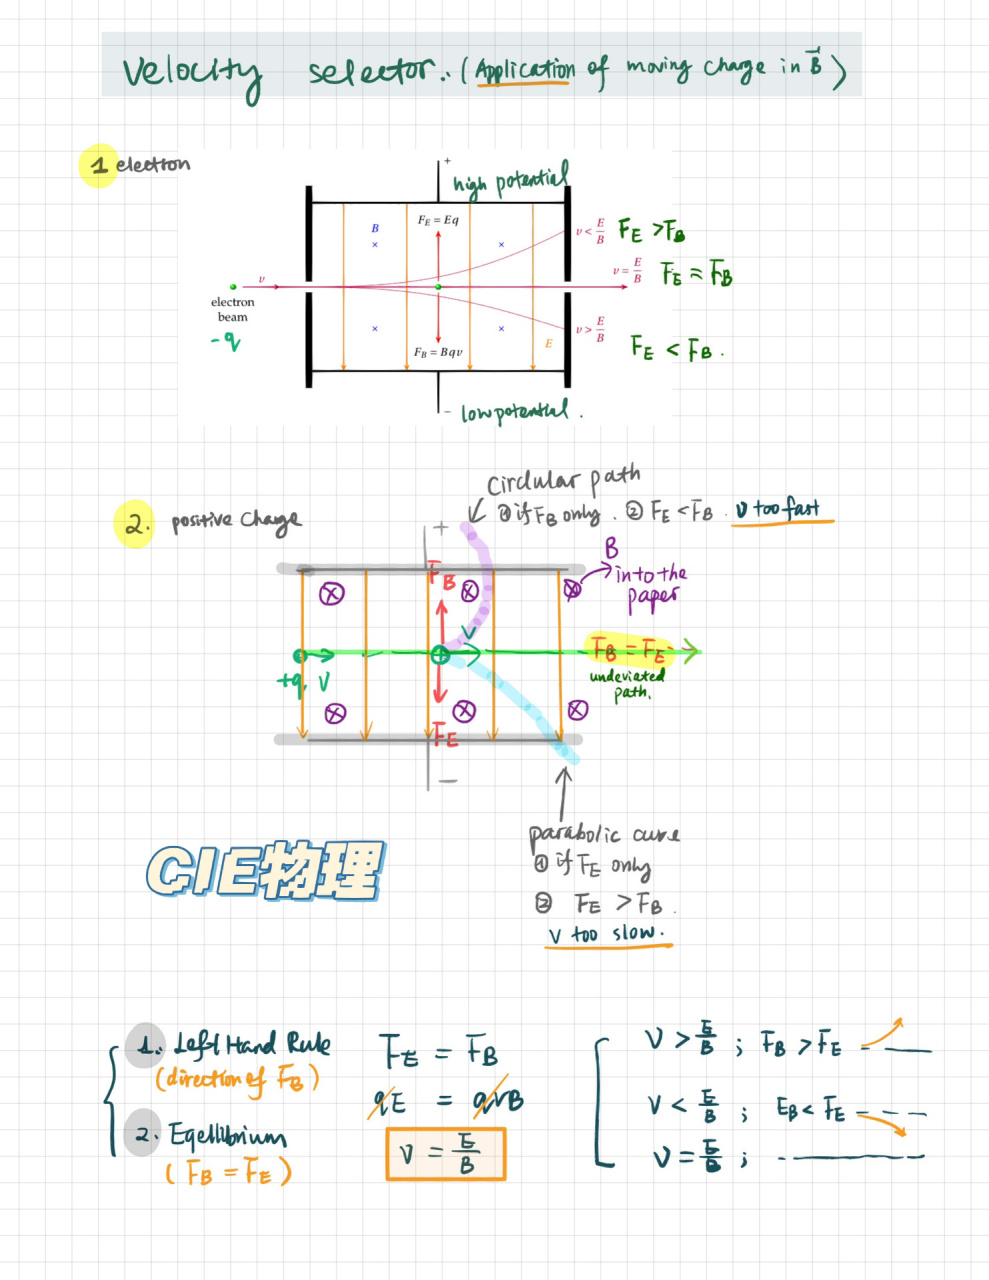 Velocity selector. (Application of moving charge in B)
1 electron
+
high potential
B
F_E = Eq
v < E/B F_E > F_B
v = E/B F_E = F_B
v
electron
beam
-q
v > E/B
F_E < F_B.
E
F_B = Bqv
- low potential.
2. positive charge
Circular path
① if F_B only. ② F_E < F_B. v too fast
+
B
into the
paper
F_B
v
F_B = F_E
undeviated
path.
+q v
F_E
−
parabolic curve
① if F_E only
② F_E > F_B.
v too slow.
CIE物理
1. Left Hand Rule
(direction of F_B)
2. Eqellibrium
(F_B = F_E)
F_E = F_B
qE = qvB
v = E/B
v > E/B ; F_B > F_E
v < E/B ; E_B < F_E
v = E/B ;